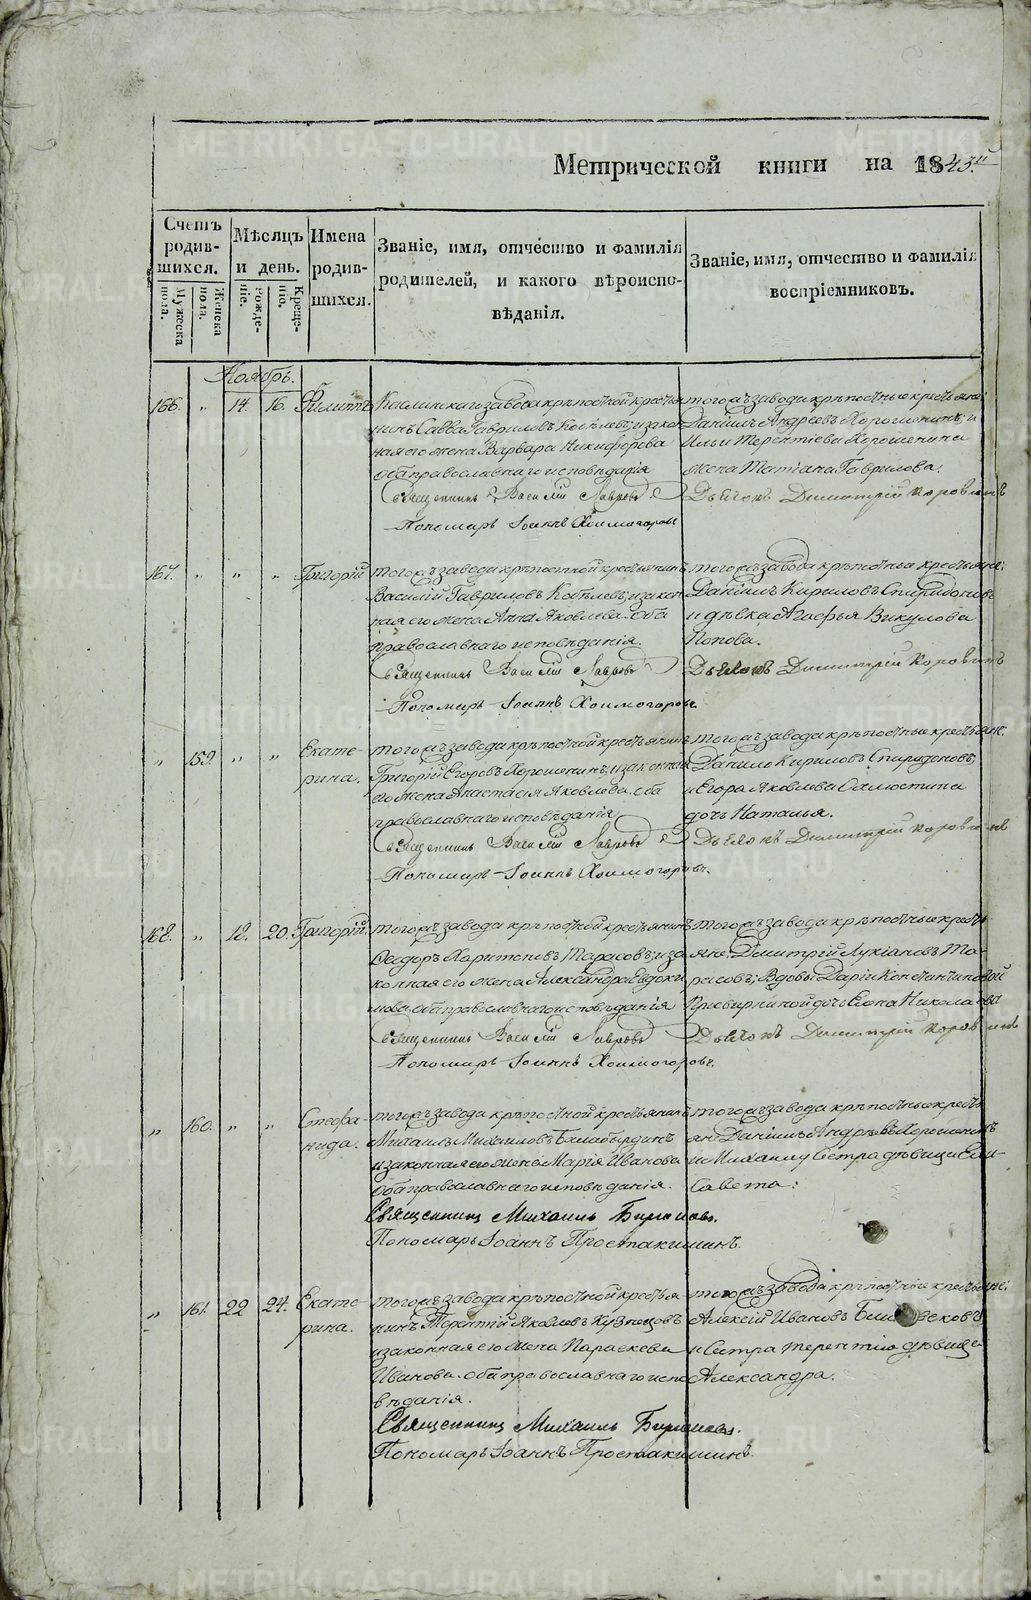 Метрической книги на 1843й
Счетъ родив-шихся.
Мужеска пола.
Женска пола.
Мѣсяцъ и день.
Рожде-ніе.
Креще-нію.
Имена родив-шихся.
Званіе, имя, отчество и фамилія
родителей, и какого вѣроиспо-
вѣданія.
Званіе, имя, отчество и фамилія
воспріемниковъ.
Ноябрь.
166. „ 14. 16. Филиппъ
завода крѣпостной крестья-
нинъ Савва Гавриловъ Кобѣлевъ, и закон-
ная его жена Варвара Никифорова
оба православнаго исповѣданія
Священникъ Василій Лавровъ
Пономарь Іоаннъ Холмогоровъ
тогожъ завода крѣпостные крестьяне
Даніилъ Андреевъ Хорошенинъ, и
Ильи Терентіева Хорошенина
жена Татіана Гаврилова.
Дьячокъ Димитрій Коровинъ
167. „ „ „ Григорій
тогожъ завода крѣпостной крестьянинъ
Василій Гавриловъ Кобѣлевъ, и закон-
ная его жена Анна Яковлева. оба
православнаго исповѣданія.
Священникъ Василій Лавровъ
Пономарь Іоаннъ Холмогоровъ.
тогожъ завода крѣпостные крестьяне:
Даніилъ Кириловъ Спиридоновъ
и дѣвка Агафья Викулова
Попова.
Дьячокъ Димитрій Коровинъ
„ 159. „ „ Екате-
рина.
тогожъ завода крѣпостной крестьянинъ
Григорій Егоровъ Хорошенинъ, и законная
его жена Анастасія Яковлева. оба
православнаго исповѣданія
Священникъ Василій Лавровъ
Пономарь Іоаннъ Холмогоровъ.
тогожъ завода крѣпостные крестьяне:
Данило Кириловъ Спиридоновъ,
и Егора Яковлева
дочь Наталья.
Дьячокъ Димитрій Коровинъ
168. „ 18. 20. Григорій.
тогожъ завода крѣпостной крестьянинъ
Ѳеодоръ Харитоновъ Тарасовъ, и за-
конная его жена Александра Евдоки-
мова. оба православнаго исповѣданія
Священникъ Василій Лавровъ
Пономарь Іоаннъ Холмогоровъ.
тогожъ завода крѣпостные кресть-
яне: Димитрій Лукіановъ Та-
расовъ, Вдовы Даріи Константиновой
дочь Николаева
Дьячокъ Димитрій Коровинъ
„ 160. „ „ Стефа-
нида.
тогожъ завода крѣпостной крестьянинъ
Михаилъ Михаиловъ
и законная его жена Марія Иванова
оба православнаго исповѣданія.
Священникъ Михаилъ Бирюковъ.
Пономарь Іоаннъ Простакишинъ.
тогожъ завода крѣпостные кресть-
яне Даніилъ Андреевъ Хорошенинъ
и Михаилу Сестра дѣвица Ели-
савета:
„ 161. 22 24. Екате-
рина.
тогожъ завода крѣпостной крестья-
нинъ Терентій Яковлевъ Кузнецовъ
и законная его жена Параскева
Иванова. оба православнаго испо-
вѣданія.
Священникъ Михаилъ Бирюковъ.
Пономарь Іоаннъ Простакишинъ.
тогожъ завода крѣпостные крестьяне:
Алексій Ивановъ
и Сестра Терентію дѣвица
Александра.
METRIKI.GASO-URAL.RU